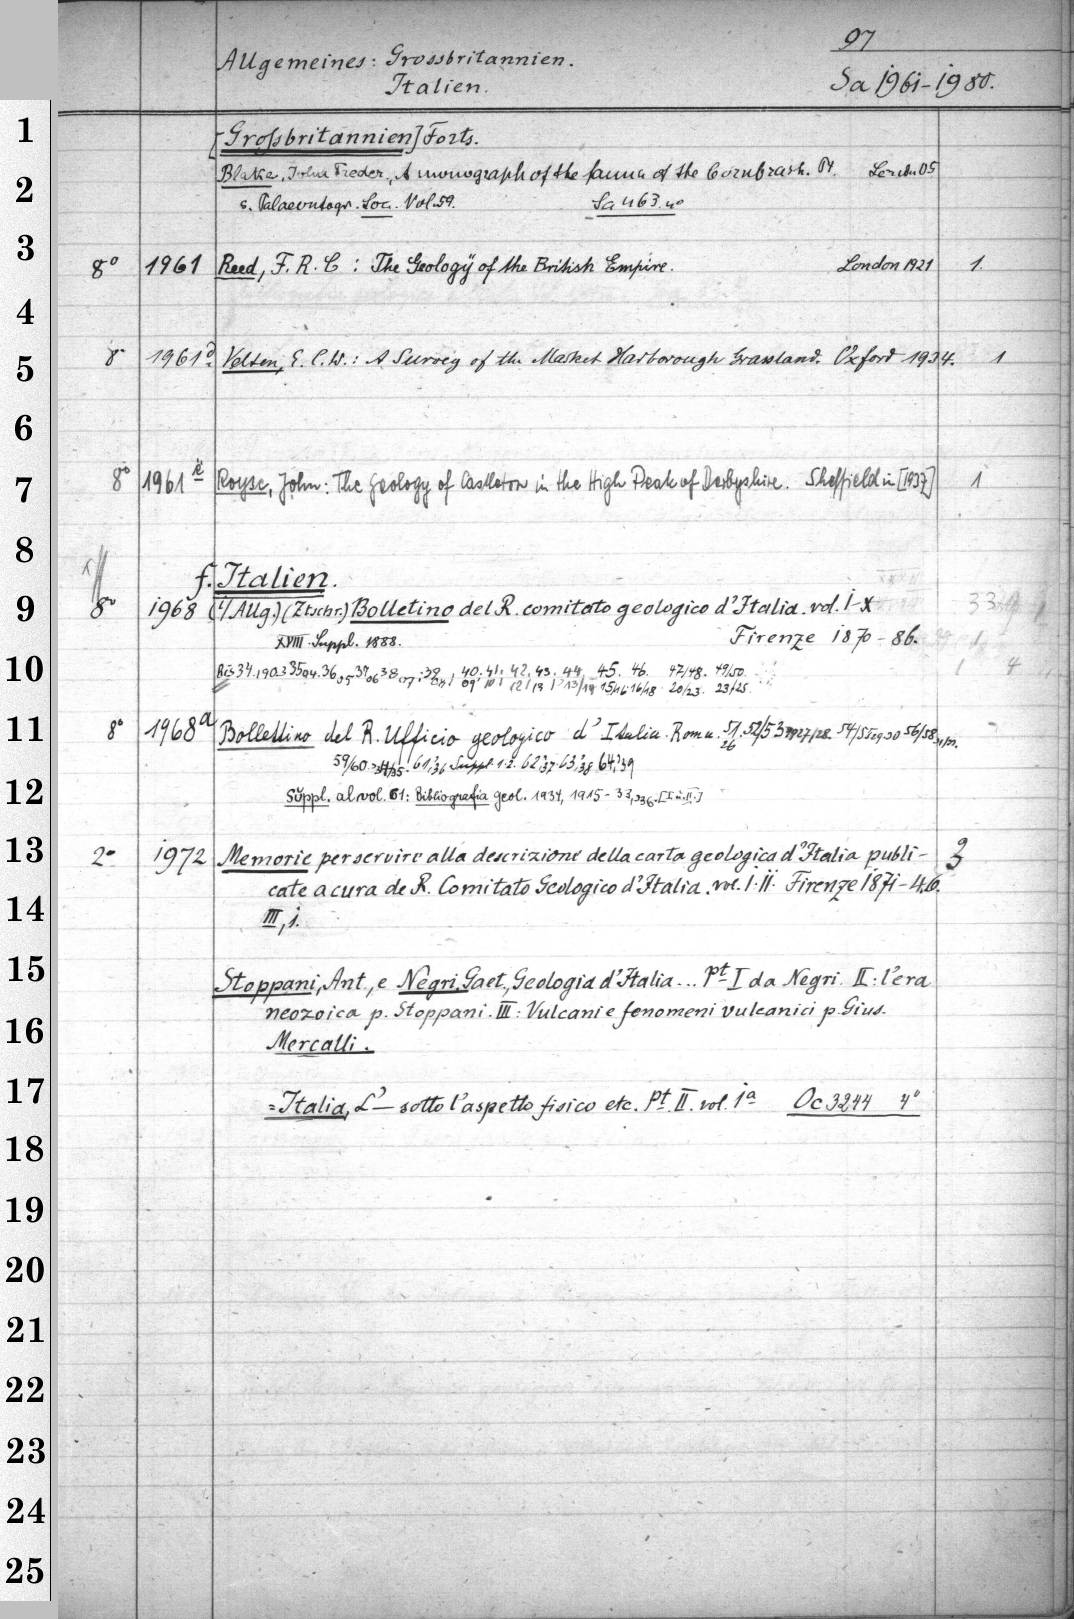 97
Allgemeines: Grossbritannien.
Italien.
Sa 1961-1980.
1
[Großbritannien] Forts.
2
Blake, John Freder., A monograph of the fauna of the Cornbrash. Pt. London 05
s. Palaeontogr. Soc. Vol. 59. Sa 463. 4°
3
8° 1961 Reed, F. R. C: The Geology of the British Empire. London 1921 1.
4
5
8° 1961 Velten, E. C. W.: A Survey of the Market Harborough Grassland. Oxford 1934. 1
6
7
8° 1961 e Royse, John: The Geology of Castleton in the High Peak of Derbyshire. Sheffield [1937] 1
8
f. Italien.
9
8° 1968 (1/Allg.) (Ztschr.) Bolletino del R. comitato geologico d'Italia. vol. I-X
XVIII. Suppl. 1888. Firenze 1870-86.
10
Bis 34. 1903 35 04. 36 05 37 06 38 07 40. 41. 42. 43. 44. 45. 46. 47/48. 49/50.
20/23. 23/25.
11
8° 1968a Bollettino del R. Ufficio geologico d'Italia. Roma. 51. 52/53 54/55 56/58
59/60. 34/35. 61,'36 Suppl. 1.2. 62,'37. 63,'38 64,'39
12
Suppl. al vol. 61: Bibliografia geol. 1934, 1915-33, 936. [I u. II.]
13
2° 1972 Memorie per servire alla descrizione della carta geologica d'Italia publi- 3
cate a cura de R. Comitato Geologico d'Italia. vol. I. II. Firenze 1871-
14
III, 1.
15
Stoppani, Ant., e Negri, Gaet., Geologia d'Italia... Pt I da Negri. II: l'era
neozoica p. Stoppani. III: Vulcani e fenomeni vulcanici p. Gius.
16
Mercalli.
17
=Italia, L'— sotto l'aspetto fisico etc. Pt. II. vol. 1a Oc 3244 4°
18
19
20
21
22
23
24
25